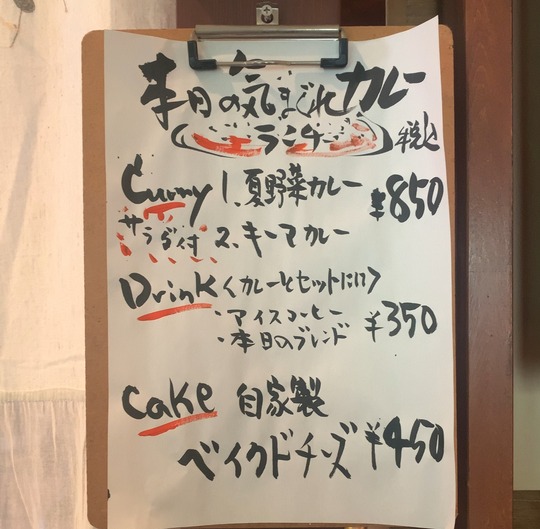 本日の気まぐれカレー
ランチ
税込
Curry 1.夏野菜カレー ¥850
サラダ付 2.キーマカレー
Drink <カレーとセットにに>
・アイスコーヒー
・本日のブレンド ¥350
Cake 自家製
ベイクドチーズ ¥450